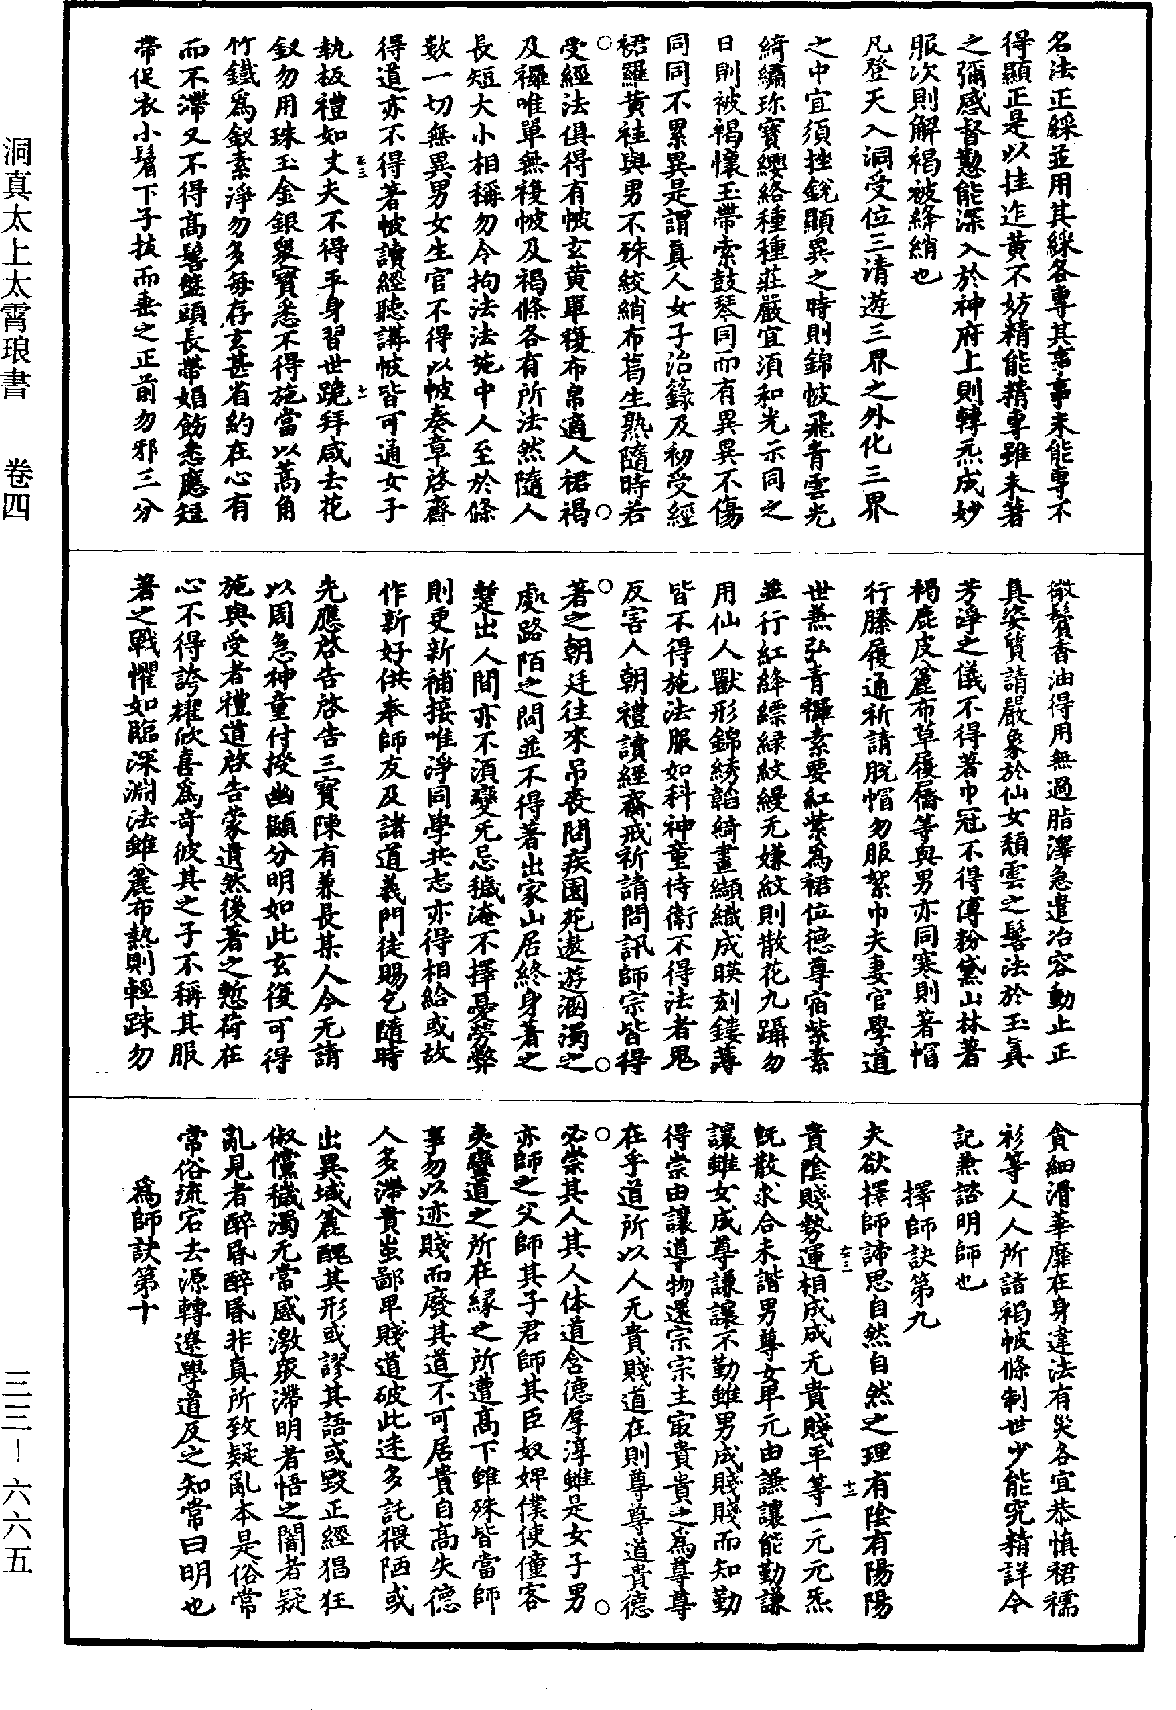 洞真太上太霄琅書　卷四
三三－六六五
名法正綵並用其綵各專其事事未能專不
得顯正是以挂迮黃不妨精能精專雖未著
之彌感督懃能深入於神府上則轉炁成妙
服次則解褐被絳綃也
凡登天入洞受位三清遊三界之外化三界
之中宜須挫銳顯異之時則錦帔飛青雲光
綺繡珎寶纓絡種種莊嚴宜須和光示同之
日則被褐懷玉帶索鼓琴同而有異異不傷
同同不累異是謂真人女子治籙及初受經
裙羅黃袿與男不殊絞綃布葛生熟隨時若
受經法俱得有帔玄黃單複布帛適人裙褐
及襬唯單無複帔及褐條各有所法然隨人
長短大小相稱勿令拘法法施中人至於條
數一切無異男女生官不得以帔奏章啓齋
得道亦不得著帔讀經聽講帔皆可通女子
玄三
十一
執板禮如丈夫不得平身習世跪拜咸去花
釵勿用珠玉金銀眾寶悉不得施當以蒿角
竹鐵為釵素淨勿多每存玄甚省約在心有
而不滯又不得高髻盤頭長帶媚飾悉應短
帶促衣小鬈下子拔而垂之正前勿邪三分
微鬢香油得用無過脂澤急遣冶容動止正
真姿質請嚴象於仙女頹雲之髻法於玉真
芳淨之儀不得著巾冠不得傅粉黛山林著
褐鹿皮麄布草履屩等與男亦同寒則著帽
行縢履通祈請脫帽勿服絮巾夫妻官學道
世兼弘青褲素要紅紫為裙位德尊宿紫素
並行紅絳縹綠紋縵无嫌紋則散花九躡勿
用仙人獸形錦綉韜綺畫纈織成暎刻鏤薄
皆不得施法服如科神童侍衛不得法者鬼
反害人朝禮讀經齋戒祈請問訊師宗皆得
著之朝廷往來吊喪問疾園死遨遊溷濁之
處路陌之間並不得著出家山居終身著之
楚出人間亦不須變无忌穢淹不擇憂勞弊
則更新補接唯淨同學共志亦得相給或故
作新好供奉師友及諸道義門徒賜乞隨時
先應啓告啓告三寶陳有兼長某人今无請
以周急神童付授幽顯分明如此玄復可得
施與受者禮道啓告蒙遺然後著之慙荷在
心不得誇耀欣喜為奇彼其之子不稱其服
著之戰懼如臨深淵法雖麄布熱則輕踈勿
貪細滑華靡在身違法有災各宜恭慎裙襦
衫等人人所諳褐帔條制世少能究精詳令
記兼諮明師也
擇師訣第九
夫欲擇師諦思自然自然之理有陰有陽陽
玄三
十二
貴陰賤勢運相成成无貴賤平等一元元炁
既散求合未諧男尊女卑元由謙讓能勤謙
讓雖女成尊謙讓不勤雖男成賤賤而知勤
得崇由讓導物還宗宗主㝡貴貴之為尊尊
在乎道所以人无貴賤道在則尊尊道貴德
必崇其人其人体道含德厚淳雖是女子男
亦師之父師其子君師其臣奴婢僕使僮客
夷蠻道之所在緣之所遭高下雖殊皆當師
事勿以迹賤而廢其道不可居貴自高失德
人多滯貴蚩鄙卑賤道破此迷多託猥陋或
出異域麄醜其形或謬其語或毀正經猖狂
俶儻穢濁无常感激眾滯明者悟之闇者疑
亂見者醉昏醉昏非真所致疑亂本是俗常
常俗流宕去源轉遼學道反之知常曰明也
為師訣第十